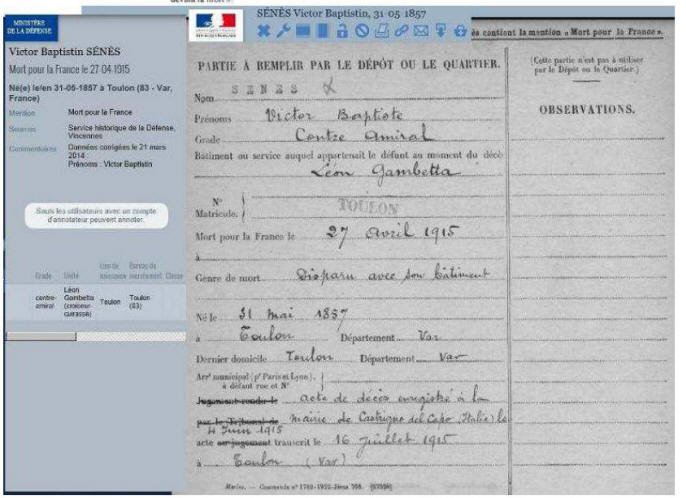 MINISTÈRE
DE LA DÉFENSE
Victor Baptistin SÉNÈS
Mort pour la France le 27 04 1915
Né(e) le/en 31-05-1857 à Toulon (83 - Var,
France)
Mention Mort pour la France
Sources Service historique de la Défense,
Vincennes
Commentaires Données corrigées le 21 mars
2014 :
Prénoms : Victor Baptistin
Seuls les utilisateurs avec un compte
d'annotateur peuvent annoter.
Grade Unité Lieu de naissance Bureau de recrutement Classe
contre-amiral Léon Gambetta (croiseur cuirassé) Toulon Toulon (83)
SÉNÈS Victor Baptistin, 31-05-1857
contient la mention « Mort pour la France ».
PARTIE À REMPLIR PAR LE DÉPÔT OU LE QUARTIER.
Nom SENES
Prénoms Victor Baptiste
Grade Contre Amiral
Bâtiment ou service auquel appartenait le défunt au moment du décè
Léon Gambetta
N°
Matricule. TOULON
Mort pour la France le 27 avril 1915
à
Genre de mort Disparu avec son bâtiment
Né le 31 mai 1857
à Toulon Département Var
Dernier domicile Toulon Département Var
Arrt municipal (pr Paris et Lyon),
à défaut rue et N°
Jugement rendu le acte de décès enregistré à la
par le Tribunal de mairie de Castrigno del Capo (Italie) le
4 Juin 1915
acte ou jugement transcrit le 16 juillet 1915
à Toulon (Var)
Marine. — Commande n° 1760-1922-2ème 708. [67594]
(Cette partie n'est pas à utiliser
par le Dépôt ou le Quartier.)
OBSERVATIONS.